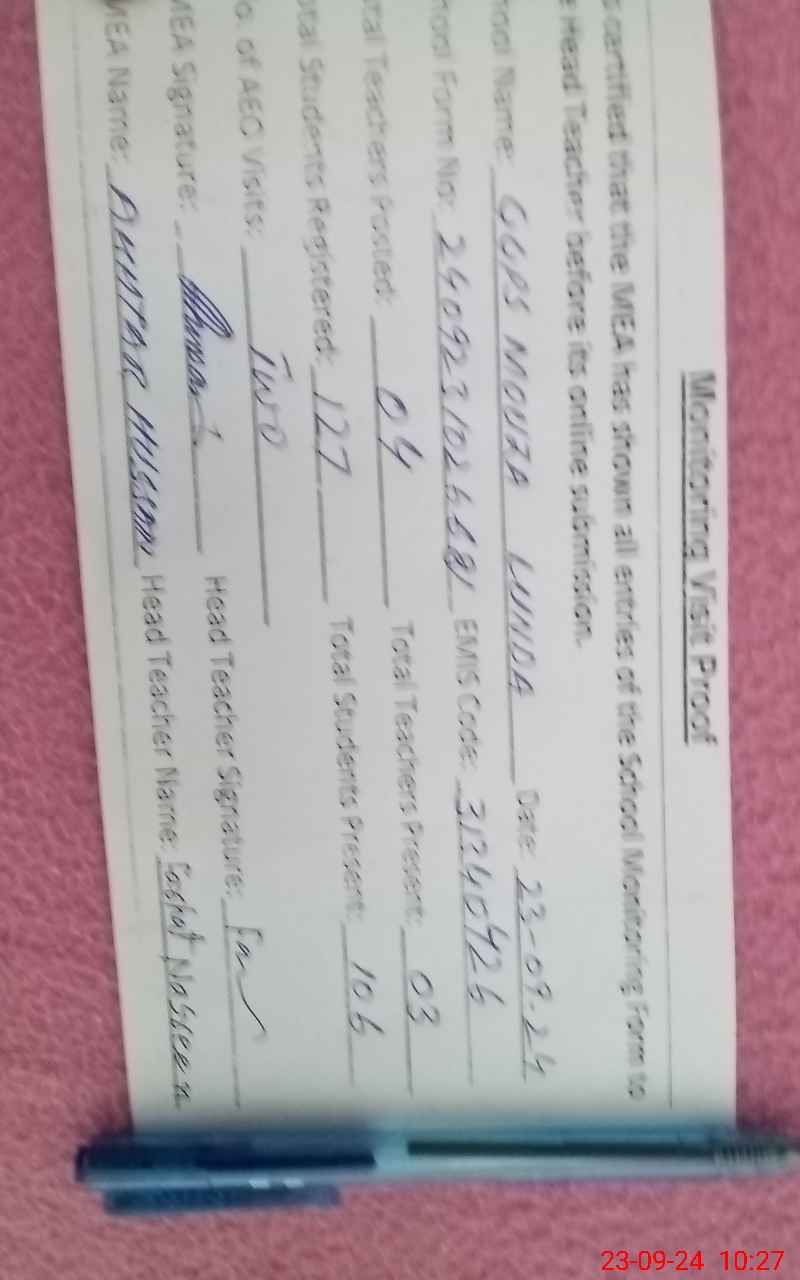 Monitoring Visit Proof
s certified that the MEA has shown all entries of the School Monitoring Form to
e Head Teacher before its online submission.
hool Name: GGPS MOUZA LUNDA Date: 23-09-24
hool Form No: EMIS Code: 31240426
tal Teachers Posted: 04 Total Teachers Present: 03
otal Students Registered: 127 Total Students Present: 106
o. of AEO Visits: Two
MEA Signature: Head Teacher Signature:
MEA Name: AKHTAR HUSSAIN Head Teacher Name: Nasreen
23-09-24 10:27